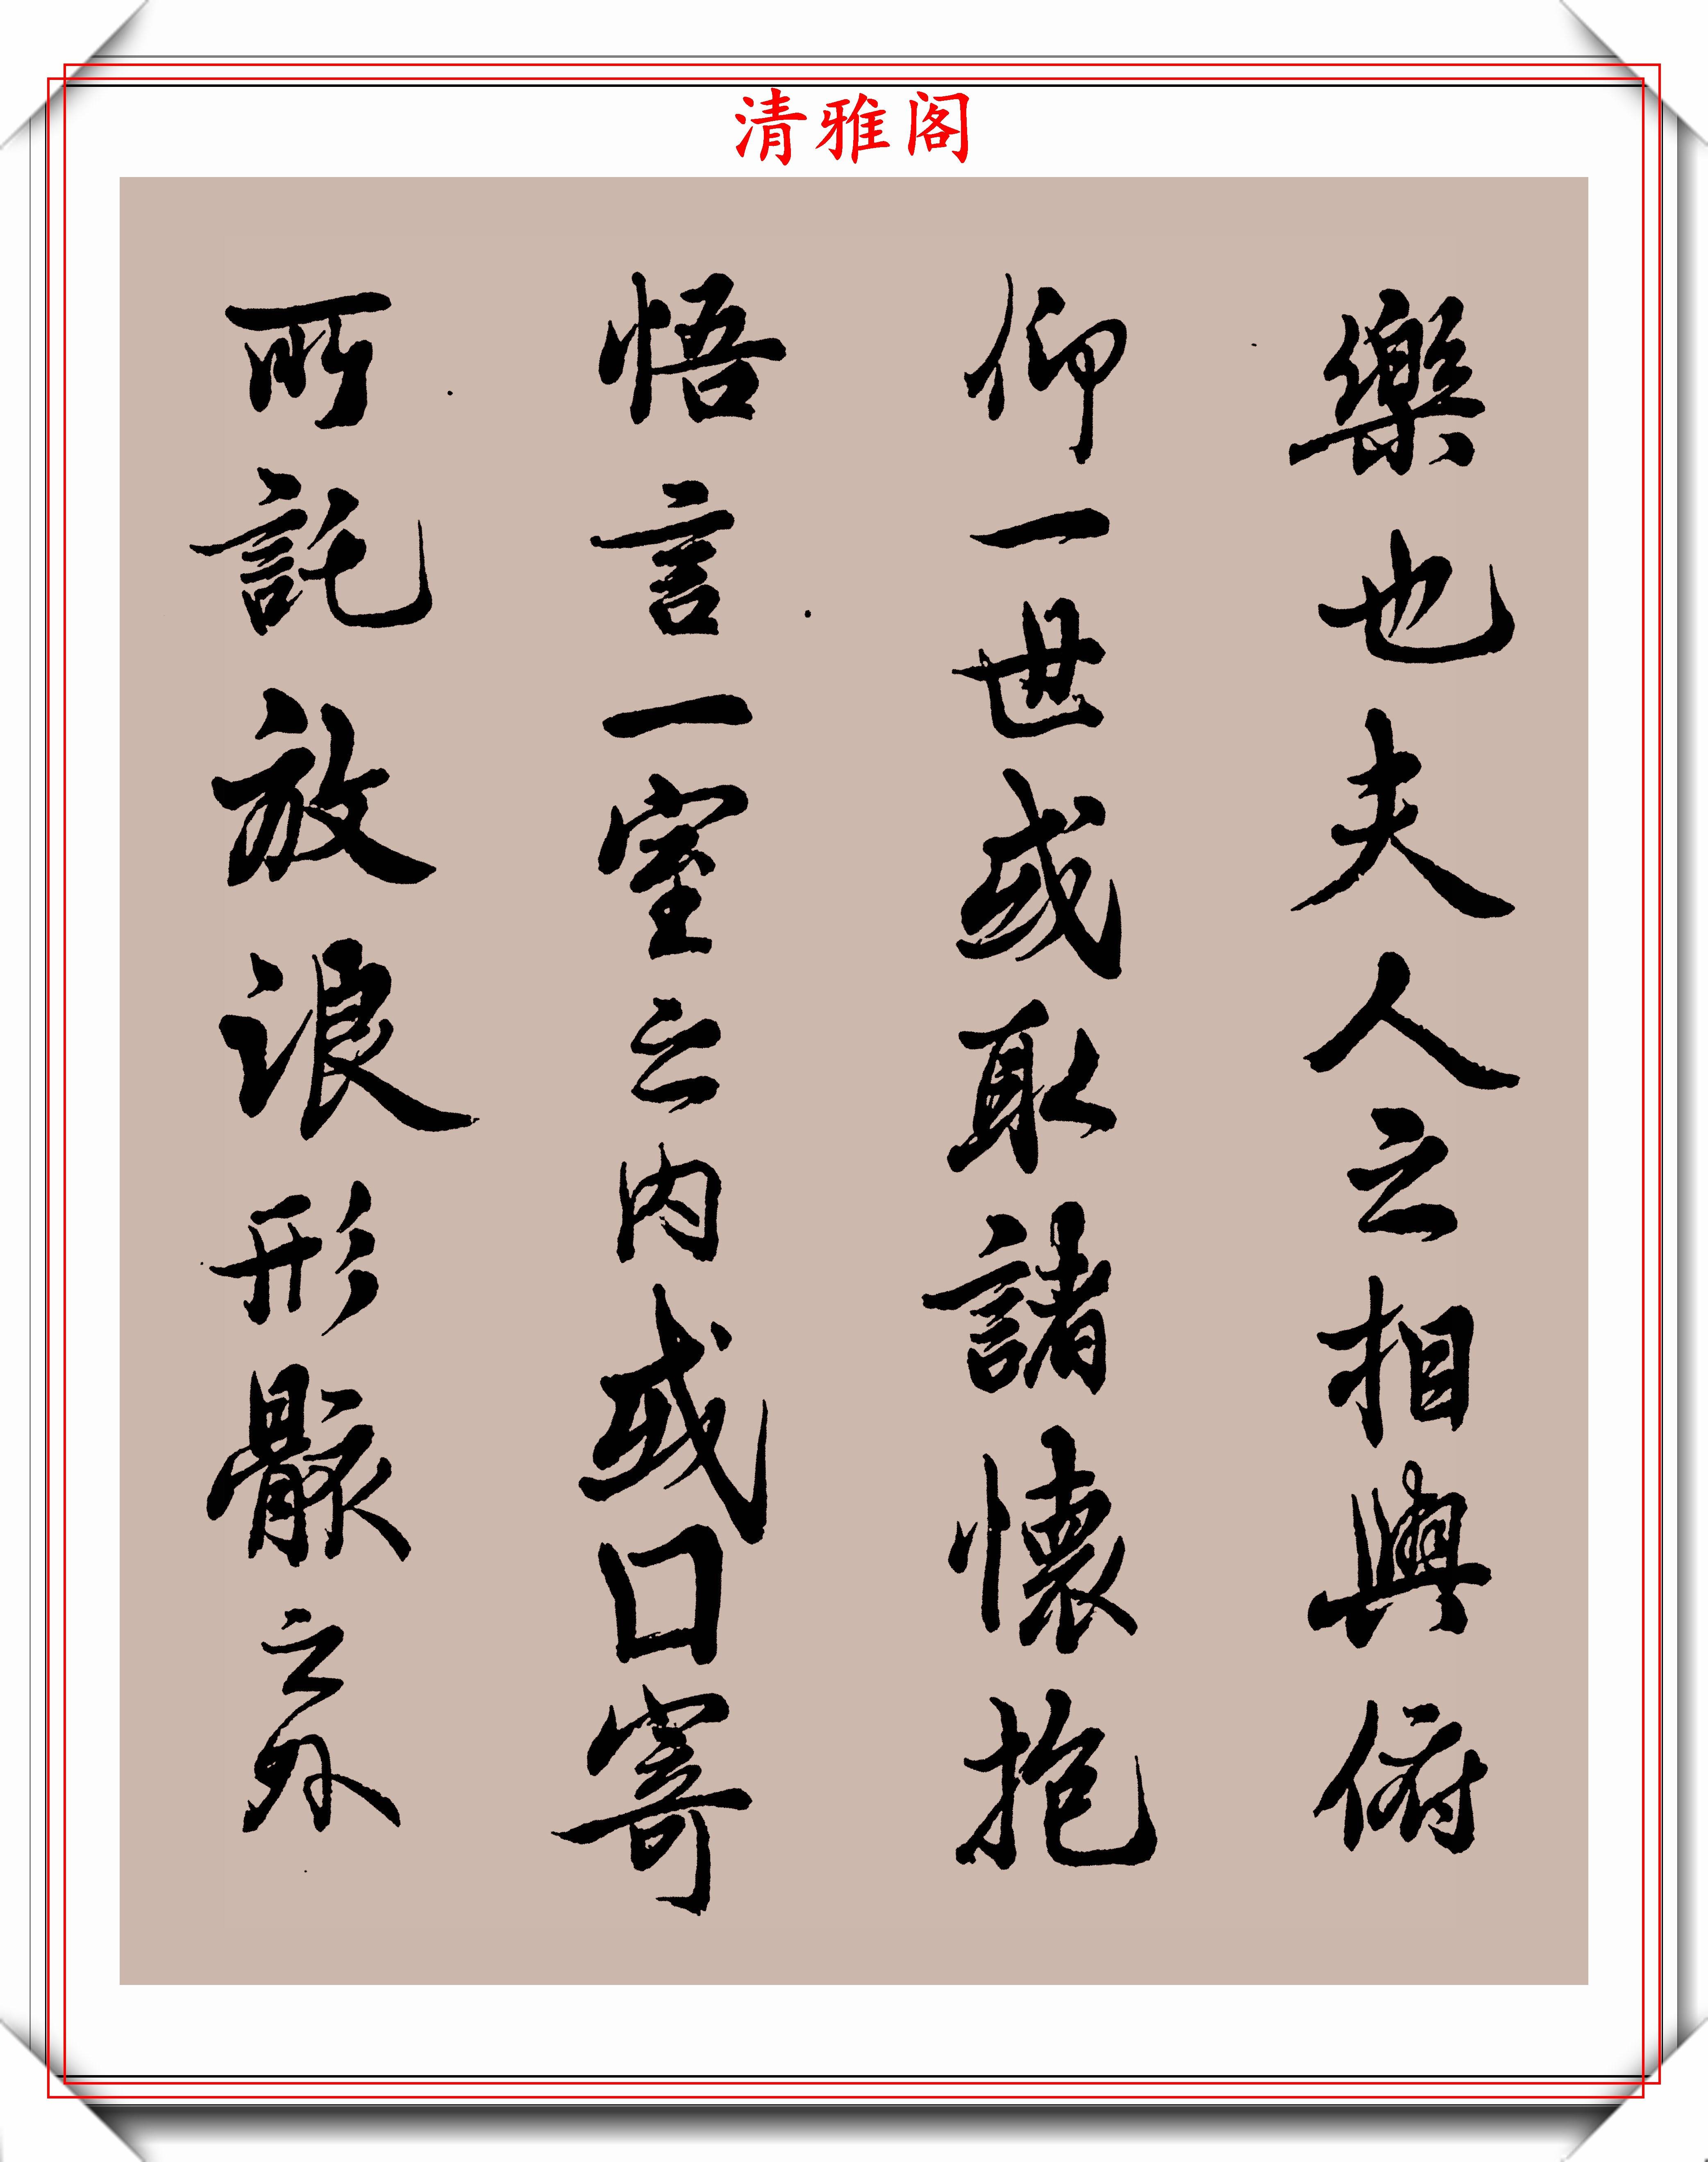 清雅阁
樂也夫人之相與俯
仰一世或取諸懷抱
悟言一室之内或口寄
所託放浪形骸之外